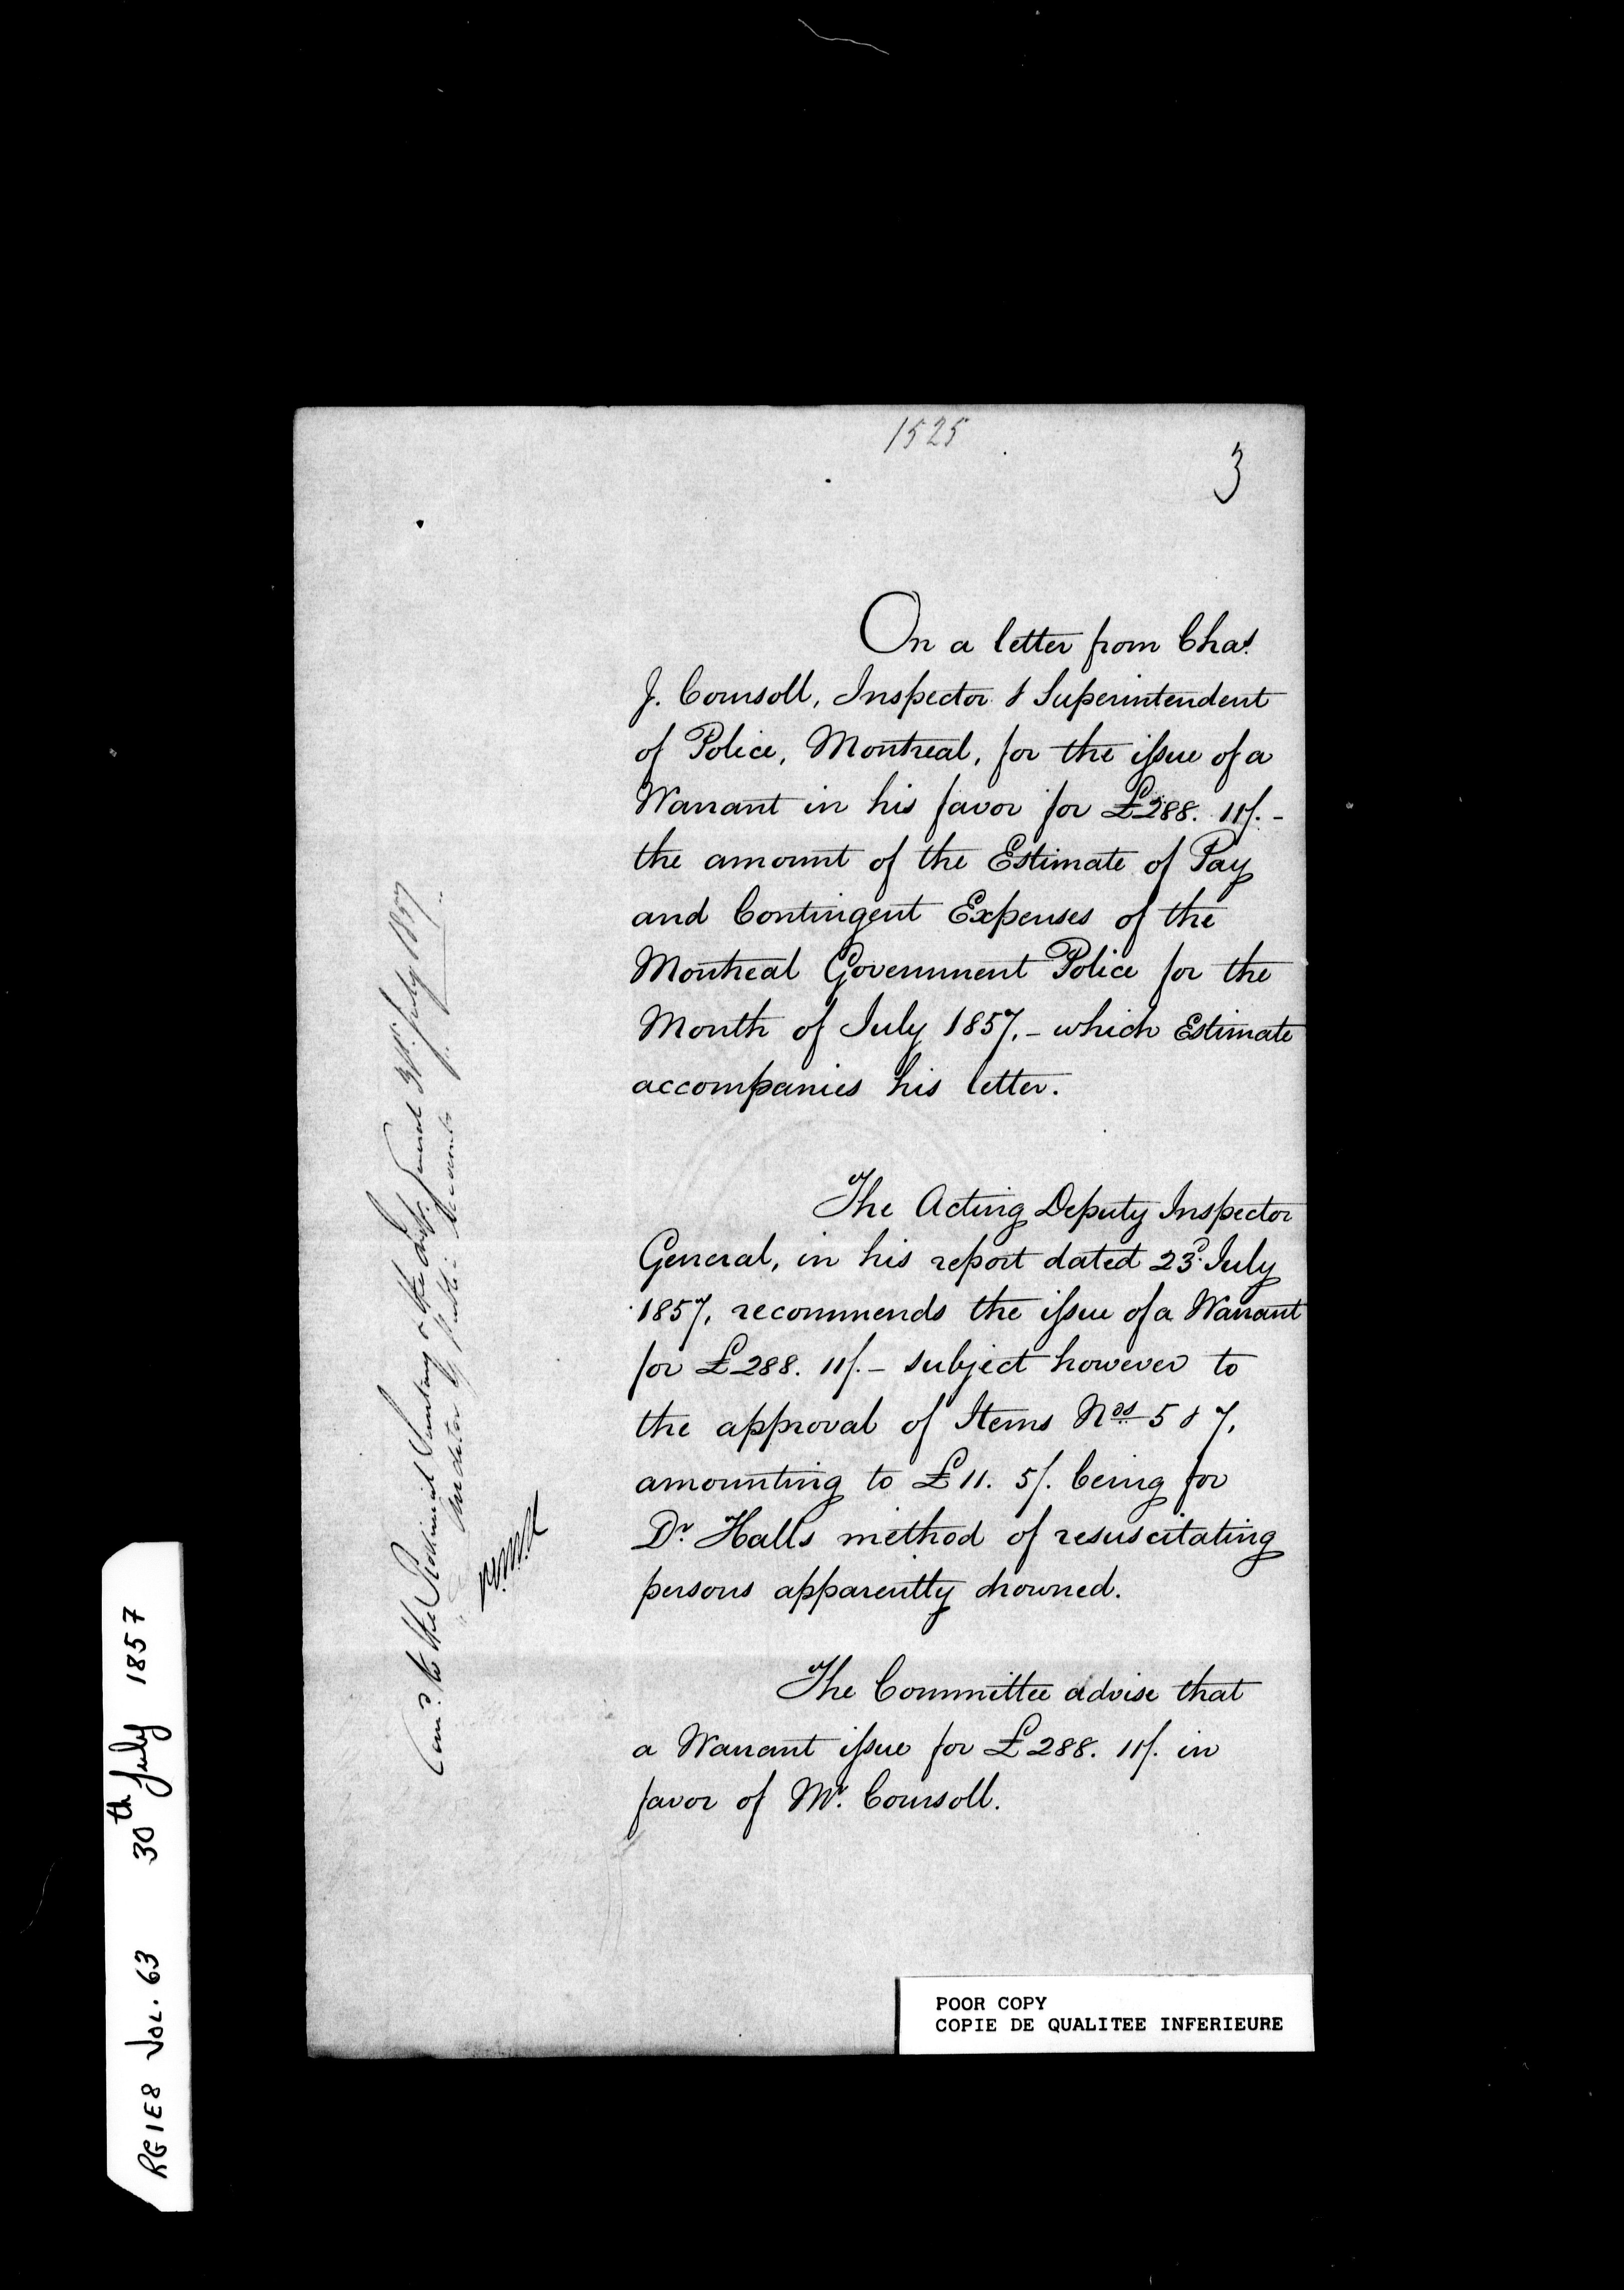 1525
3
On a letter from Chas.
J. Coursoll, Inspector & Superintendent
of Police, Montreal, for the issue of a
Warrant in his favor for £288. 11/. -
the amount of the Estimate of Pay
and Contingent Expenses of the
Montreal Government Police for the
Month of July 1857. - which Estimate
accompanies his letter.
The Acting Deputy Inspector
General, in his report dated 23d. July
1857, recommends the issue of a Warrant
for £288. 11/. - subject however to
the approval of Items Nos. 5 & 7,
amounting to £11. 5/. being for
Dr. Halls method of resuscitating
persons apparently drowned.
The Committee advise that
a Warrant issue for £288. 11/. in
favor of Mr. Coursoll.
to the Provincial Secretary & the General July 1857
Auditor of Public Accounts
RG1E8 Vol. 63 30th July 1857
POOR COPY
COPIE DE QUALITEE INFERIEURE